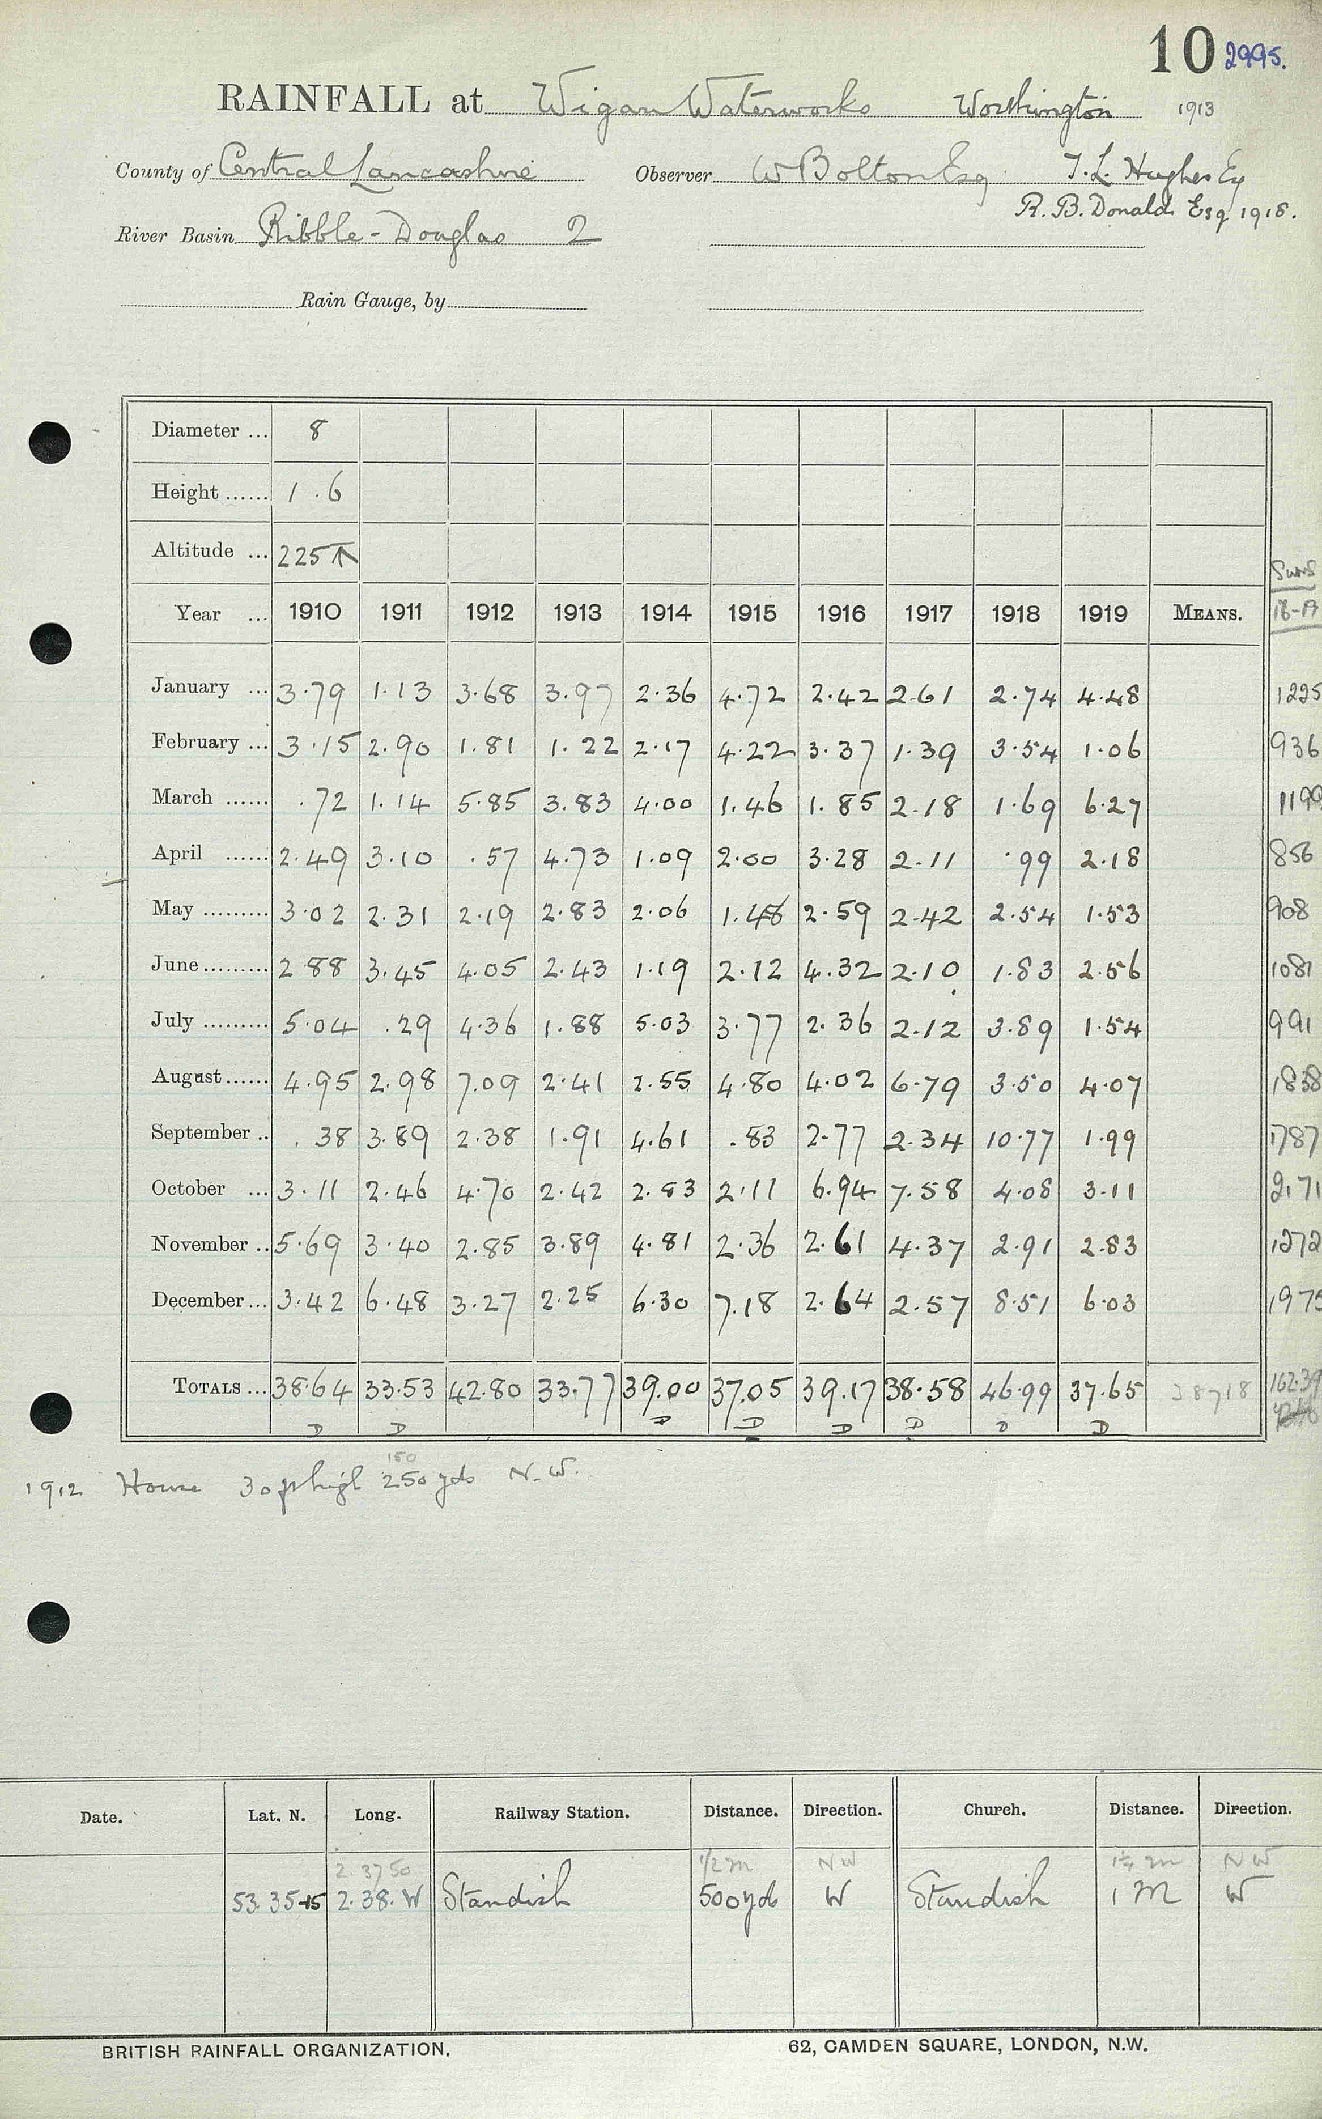 10 2995.
RAINFALL at Wigan Waterworks Worthington 1913
County of Central Lancashire Observer W Bolton Esq T. L. Hughes Esq
R. B. Donald Esq 1918.
River Basin Ribble-Douglas 2
Rain Gauge, by
Diameter ... 8
Height ...... 1.6
Altitude ... 225
Sums
Year ... 1910 1911 1912 1913 1914 1915 1916 1917 1918 1919 MEANS. 16-19
January ... 3.79 1.13 3.68 3.97 2.36 4.72 2.42 2.61 2.74 4.48 1225
February ... 3.15 2.90 1.81 1.22 2.17 4.22 3.37 1.39 3.54 1.06 936
March ...... .72 1.14 5.85 3.83 4.00 1.46 1.85 2.18 1.69 6.27 1199
April ...... 2.49 3.10 .57 4.73 1.09 2.00 3.28 2.11 .99 2.18 856
May ......... 3.02 2.31 2.19 2.83 2.06 1.48 2.59 2.42 2.54 1.53 908
June ......... 2.88 3.45 4.05 2.43 1.19 2.12 4.32 2.10 1.83 2.56 1081
July ......... 5.04 .29 4.36 1.88 5.03 3.77 2.36 2.12 3.89 1.54 991
August ...... 4.95 2.98 7.09 2.41 2.55 4.80 4.02 6.79 3.50 4.07 1838
September .. .38 3.89 2.38 1.91 4.61 .83 2.77 2.34 10.77 1.99 1787
October ... 3.11 2.46 4.70 2.42 2.83 2.11 6.94 7.58 4.08 3.11 2171
November .. 5.69 3.40 2.85 3.89 4.81 2.36 2.61 4.37 2.91 2.83 1272
December ... 3.42 6.48 3.27 2.25 6.30 7.18 2.64 2.57 8.51 6.03 1975
TOTALS ... 38.64 33.53 42.80 33.77 39.00 37.05 39.17 38.58 46.99 37.65 38718 162.39
D D D D D D D D
150
1912 House 30 ft high 250 yds N.W.
Date. Lat. N. Long. Railway Station. Distance. Direction. Church. Distance. Direction.
2.37 50 1/2 m NW 1¼ m NW
53.35 45 2.38. W Standish 500 yds W Standish 1 M W
BRITISH RAINFALL ORGANIZATION. 62, CAMDEN SQUARE, LONDON, N.W.